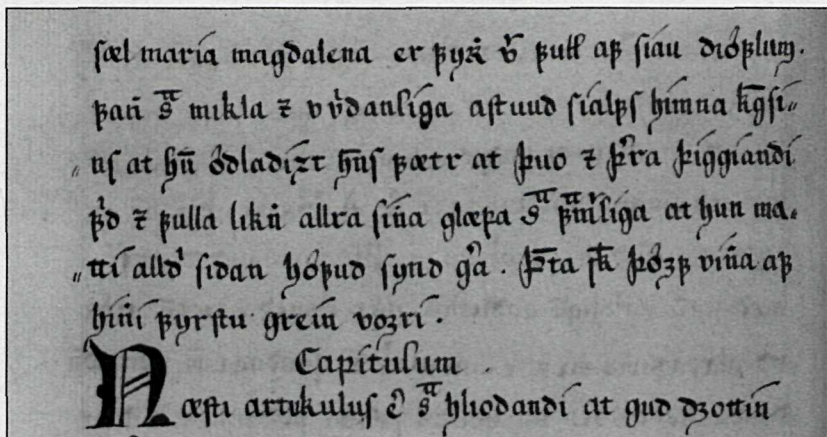 sæl maria magdalena er ꝼyrı̇ v͛ ꝼull aꝼ siau dióꝼlum.
ꝼan̄ s̄ᵃ mikla ⁊ vv͛danliga astuud sialꝼs himna kḡsi„
„ns at hūn ódladizt hn̄s ꝼætr at þuo ⁊ þ͛ra þiggiandi
ꝼ͛d ⁊ ꝼulla likn̄ allra sin̄a glæpa s̄ᵃ ꝼm̄liga at hun ma„
„tti alld͛ sidan hóꝼud synd g͛a . þt̄a sk̄ þóꝛꝼ vin̄a aꝼ
hin̄i ꝼyrstu grein voꝛri.
Capitulum .
Næsti artukulus e͛ s̄ᵃ hliodandi at gud dꝛottin̄